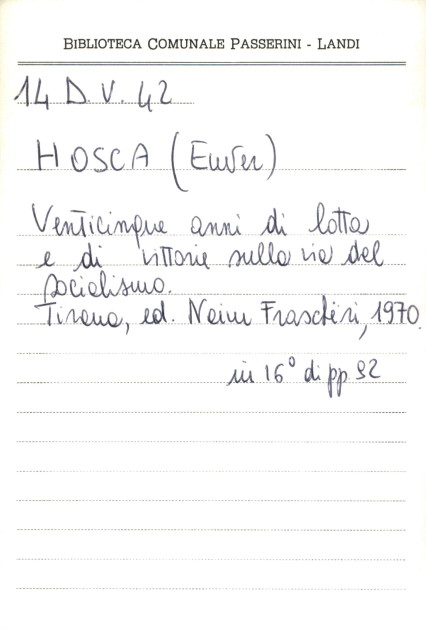 BIBLIOTECA COMUNALE PASSERINI - LANDI
14 D. V. 42
HOSCA (Enver)
Venticinque anni di lotta
e di vittorie sulla via del
socialismo.
Tirana, ed. Naim Fraschëri, 1970
in 16° di pp 92